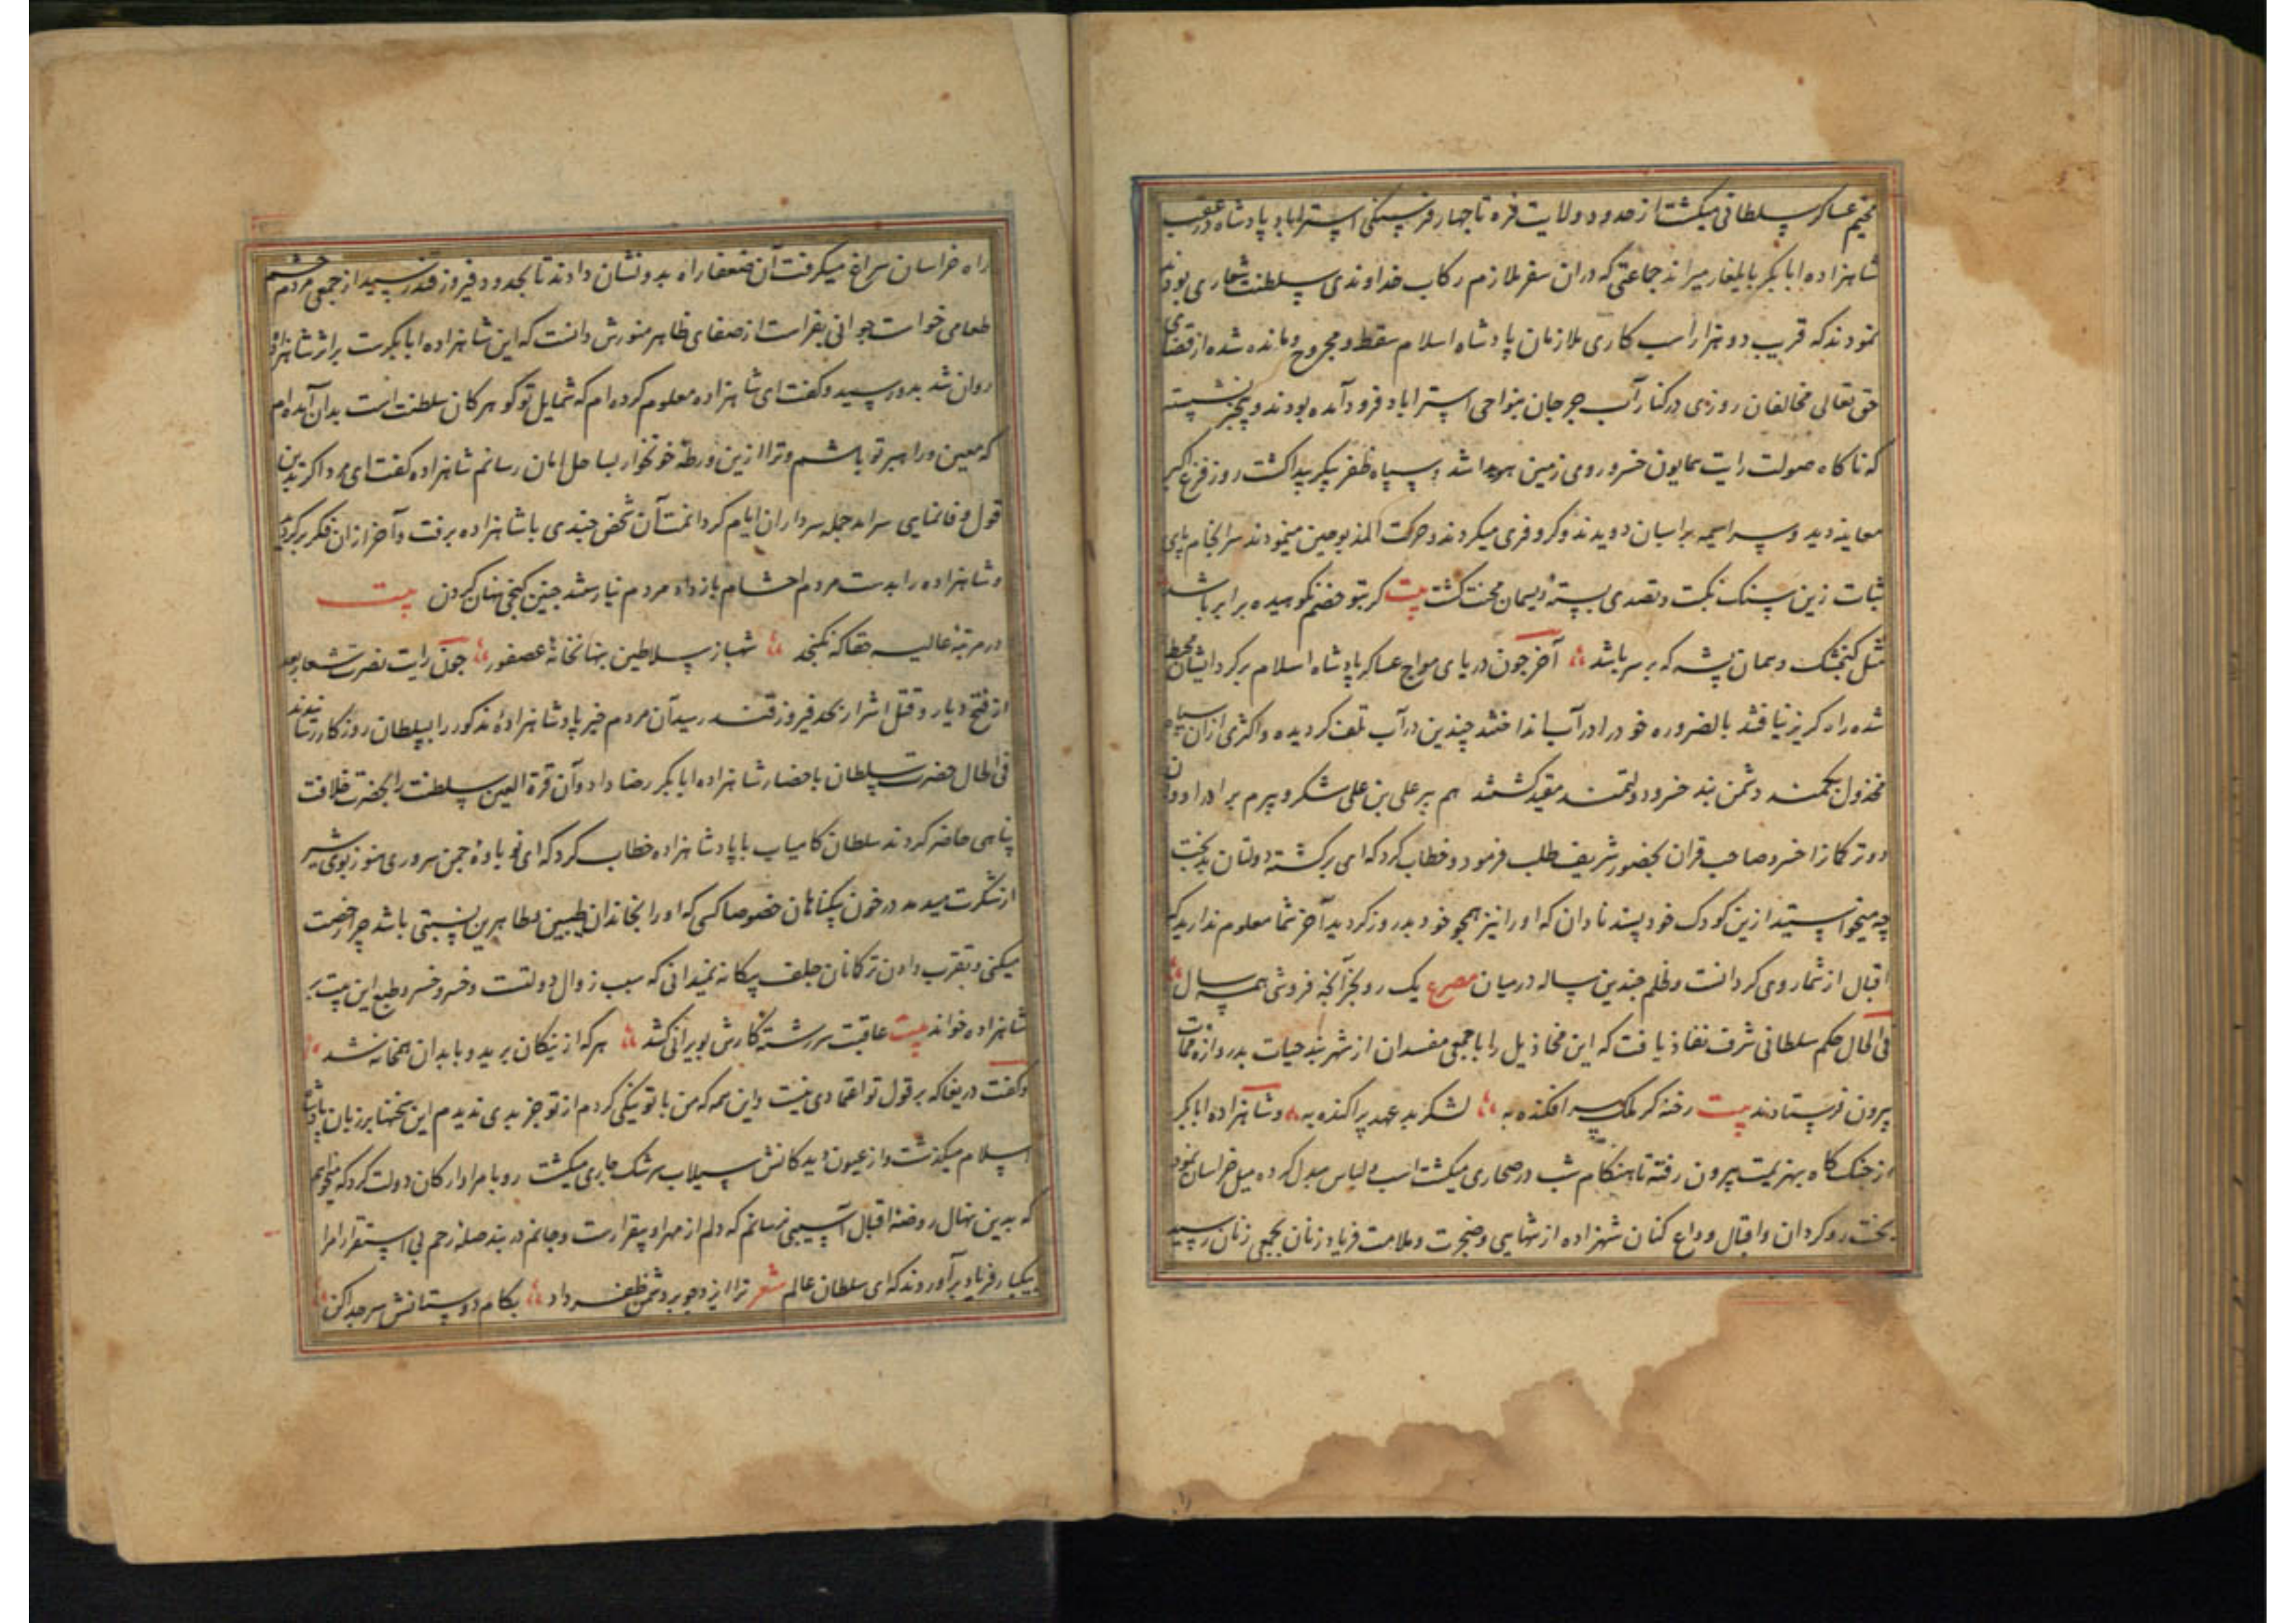 مخیم عساکر سلطانی میکشت از حدود ولایت فره تا چهار فرسنکی استراباد پادشاه در عقب
شاهزاده ابابکر بایلغار میراند جماعتی که دران سفر ملازم رکاب خداوندی سلطنت شعاری بودند
نمودند که قریب دو هزار اسب کاری ملازمان پادشاه اسلام سقط و مجروح و مانده شده از قضای
حق تعالی مخالفان روزی در کنار آب جرجان بنواحی استراباد فرود آمده بودند و بیخبر نشسته
که ناکاه صولت رایت همایون خسرو روی زمین هویدا شد و سپاه ظفر پیکر پیدا کشت روز فزع اکبر
معاینه دید و سراسیمه بر اسبان دویدند و کر و فری میکردند و حرکت المذبوحین مینمودند سرانجام پای
ثبات زین سنک نکبت و تصدی بستهٔ ریسمان محنت کشت بیت کر بتو خصم نکوهیده برابر باشد
مثل کنجشک و همان پشه که بر سر باشد آخر چون دریای مواج عساکر پادشاه اسلام بر کرد ایشان محیط
شده راه کریز نیافتند بالضروره خود را در آب انداختند چندین در آب تلف کردیده و اکثری ازان سپاه
مخذول بکمند دشمن بند خسرو دولتمند مقید کشتند هم پیر علی بن علی شکر و بیرم برادر او و ان
دو ترکمانرا خسرو صاحب قران بحضور شریف طلب فرمود و خطاب کرد که ای برکشته دولتان بدبخت
چه میخواستید ازین کودک خود پسند نادان که او را نیز همچو خود بد روز کردید آخر شما معلوم ندارید که
اقبال از شما روی کردانست و ظلم چندین ساله در میان مصرع یک روز بجز آنچه فروشی همه سال
فی الحال حکم سلطانی شرف نفاذ یافت که این مخاذیل را با جمعی مفسدان از شهر بند حیات بدروازه ممات
بیرون فرستادند بیت رخنه کر ملک سرافکنده به لشکر بد عهد پراکنده به و شاهزاده ابابکر
از جنک کاه بهزیمت بیرون رفته تا هنکام شب در صحاری میکشت اسب و لباس مبدل کرده میل خراسان نمود
بخت رو کردان و اقبال وداع کنان شهزاده از تنهایی و ضجرت و ملامت فریاد زنان بجمعی زنان رسید
راه خراسان سراغ میکرفت آن ضعفا راه بدو نشان دادند تا بحدود فیروز قند رسید از جمعی مردم حشم
طعامی خواست جوانی بفراست از صفای ظاهر منورش دانست که این شاهزاده ابابکرست بر اثر شاهزاده
روان شد بدو رسید و کفت ای شاهزاده معلوم کرده ام که شمایل تو کوهر کان سلطنت است بدان آمده ام
که معین و راهبر تو باشم و ترا ازین ورطهٔ خونخوار بساحل امان رسانم شاهزاده کفت ای مرد اکر بدین
قول وفا نمایی سرآمد جمله سرداران ایام کردانمت آن شخص چندی با شاهزاده برفت و آخر ازان فکر برکردید
و شاهزاده را بدست مردم احشام باز داد مردم نیارستند چنین کنجی پنهان کردن بیت
در مرتبهٔ عالیه حقا که نکنجد شهباز سلاطین بنهانخانهٔ عصفور چون رایت نصرت شعار بعد
از فتح دیار و قتل اشرار بحد فیروز قند رسید آن مردم خبر پادشاهزادهٔ مذکور را بسلطان روزکار رسانیدند
فی الحال حضرت سلطان باحضار شاهزاده ابابکر رضا داد و آن قرة العین سلطنت را بحضرت خلافت
پناهی حاضر کردند سلطان کامیاب با پادشاهزاده خطاب کرد که ای نوباوهٔ چمن سروری هنوز بوی شیر
از شکرت میدمد در خون بیکناهان خصوصا کسی که او را بخاندان طیبین مطاهرین نسبتی باشد چرا رخصت
میکنی و بتقرب دادن ترکمانان جلف بیکانه نمیدانی که سبب زوال دولتست و خسرو خسرو طبع این بیت بر
شاهزاده خواند بیت عاقبت سر رشتهٔ کارش بویرانی کشد هر که از نیکان برید و با بدان همخانه شد
و کفت دریغا که بر قول تو اعتمادی نیست و این همه که من با تو نیکی کردم از تو جز بدی ندیدم این سخنها بر زبان پادشاه
اسلام میکذشت و از عیون دیدکانش سیلاب سرشک جاری میکشت رو بامرا و ارکان دولت کرد که میخواهم
که بدین نهال روضهٔ اقبال آسیبی نرسانم که دلم از مهر او بیقرارست و جانم در بند صلهٔ رحم بی استقرار امرا
بیکبار فریاد برآوردند که ای سلطان عالم شعر ترا ایزد چو بر دشمن ظفر داد بکام دوستانش سر جدا کن